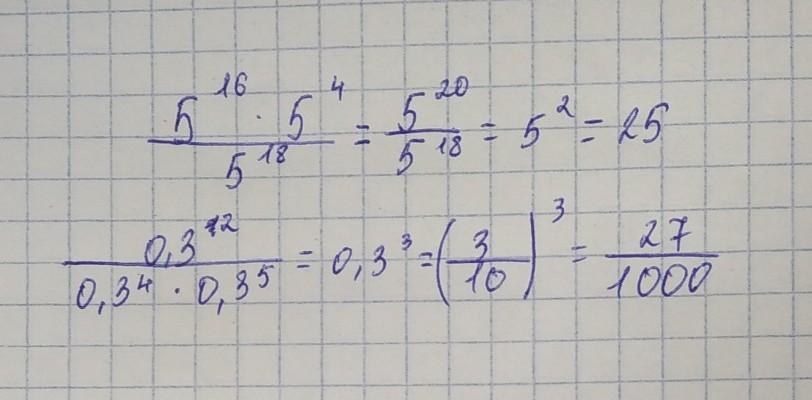 \frac{5^{16} \cdot 5^{4}}{5^{18}} = \frac{5^{20}}{5^{18}} = 5^{2} = 25
\frac{0,3^{12}}{0,3^{4} \cdot 0,3^{5}} = 0,3^{3} = \left(\frac{3}{10}\right)^{3} = \frac{27}{1000}